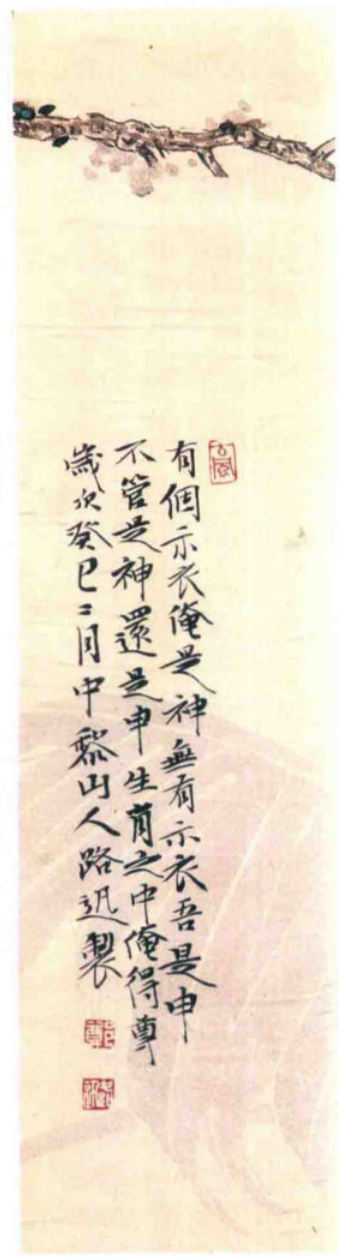 有個示衣俺是神無有示衣吾是申
不管是神還是申生肖之中俺得尊
歲次癸巳二月中黎山人路迅製